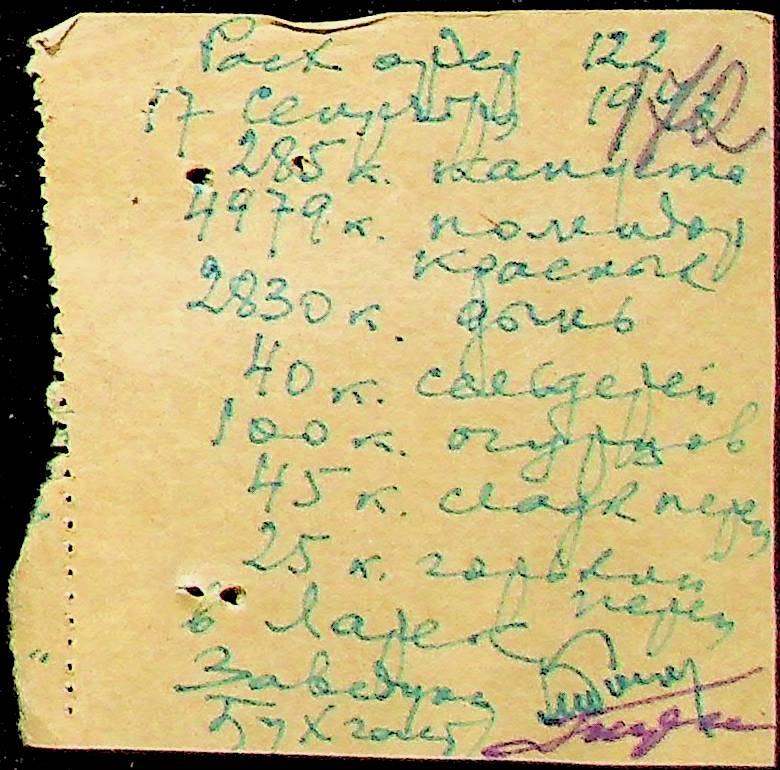 Расх ордер 122
17 Сентября 19
285 к. капуста
4979 к. помидор
красных
2830 к. дынь
40 к.
100 к. огурцов
45 к. сладк перец
25 к. горький
перец
в Ларек
Заведующ